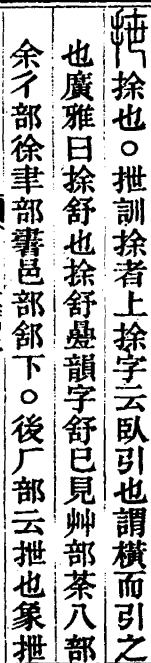 抴捈也○抴訓捈者上捈字云臥引也謂橫而引之
也廣雅曰捈舒也捈舒疊韻字舒巳見艸部荼八部
余彳部徐聿部書邑部䣄下○後厂部云抴也象抴